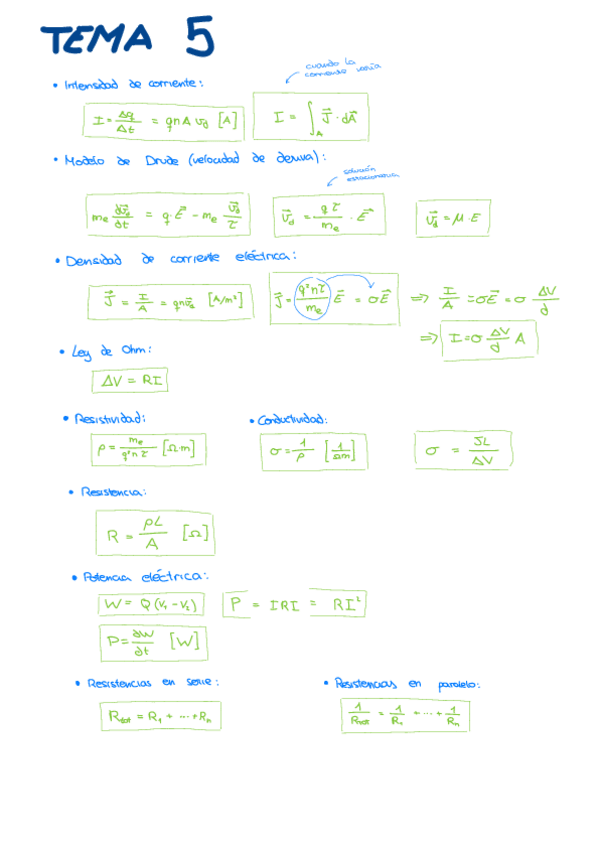 TEMA 5
cuando la
corriente varía
• Intensidad de corriente:
I = Δq/Δt = qnA v_d [A]
I = ∫_A J⃗ · dA⃗
• Modelo de Drude (velocidad de deriva):
solución
estacionaria
m_e dv⃗_d/dt = q·E⃗ − m_e v⃗_d/τ
v⃗_d = qτ/m_e · E⃗
v⃗_d = μ·E
• Densidad de corriente eléctrica:
J⃗ = I/A = qnv⃗_d [A/m²]
J⃗ = q²nτ/m_e E⃗ = σE⃗ ⟹ I/A = σE⃗ = σ ΔV/d
⟹ I = σ ΔV/d A
• Ley de Ohm:
ΔV = RI
• Resistividad:
• Conductividad:
ρ = m_e/q²nτ [Ω·m]
σ = 1/ρ [1/Ωm]
σ = JL/ΔV
• Resistencia:
R = ρL/A [Ω]
• Potencia eléctrica:
W = Q(V₁ − V₂)
P = IRI = RI²
P = dW/dt [W]
• Resistencias en serie:
• Resistencias en paralelo:
R_tot = R₁ + ··· + R_n
1/R_tot = 1/R₁ + ··· + 1/R_n